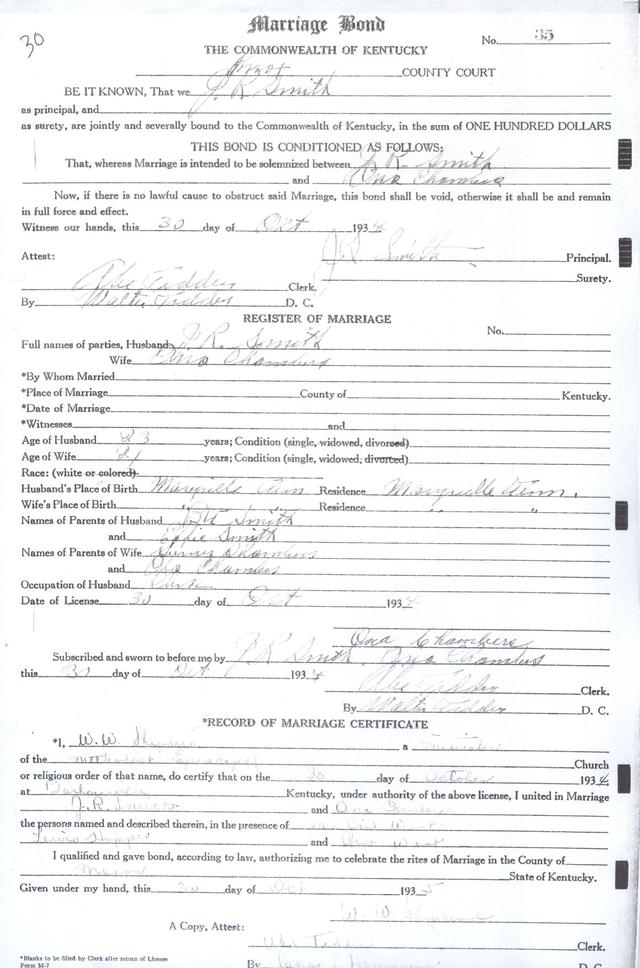 30
Marriage Bond
No. 35
THE COMMONWEALTH OF KENTUCKY
Knox COUNTY COURT
BE IT KNOWN, That we J. R. Smith
as principal, and
as surety, are jointly and severally bound to the Commonwealth of Kentucky, in the sum of ONE HUNDRED DOLLARS
THIS BOND IS CONDITIONED AS FOLLOWS:
That, whereas Marriage is intended to be solemnized between J. R. Smith
and Ona Chambers
Now, if there is no lawful cause to obstruct said Marriage, this bond shall be void, otherwise it shall be and remain
in full force and effect.
Witness our hands, this 30 day of Oct 1934
Attest: J. R. Smith Principal.
Surety.
Clerk.
By Walter D. C.
REGISTER OF MARRIAGE
No.
Full names of parties, Husband J. R. Smith
Wife Ona Chambers
*By Whom Married
*Place of Marriage County of Kentucky.
*Date of Marriage
*Witnesses and
Age of Husband 23 years; Condition (single, widowed, divorced)
Age of Wife 21 years; Condition (single, widowed, divorced)
Race: (white or colored)
Husband's Place of Birth Maryville Tenn Residence Maryville Tenn.
Wife's Place of Birth " " Residence " "
Names of Parents of Husband Smith
and Smith
Names of Parents of Wife Chambers
and Ona Chambers
Occupation of Husband
Date of License 30 day of Oct 1934
Ona Chambers
Subscribed and sworn to before me by J. R. Smith Ona Chambers
this 30 day of Oct 1934
Clerk.
By Walter D. C.
*RECORD OF MARRIAGE CERTIFICATE
*I, W. W. a Minister
of the Methodist Episcopal Church
or religious order of that name, do certify that on the 30 day of October 1934,
at Kentucky, under authority of the above license, I united in Marriage
J. R. Smith and Ona Chambers
the persons named and described therein, in the presence of
Lewis and
I qualified and gave bond, according to law, authorizing me to celebrate the rites of Marriage in the County of
State of Kentucky.
Given under my hand, this 30 day of Oct 1935
W. W.
A Copy, Attest:
Clerk.
*Blanks to be filled by Clerk after return of License
Form M-7
By D. C.